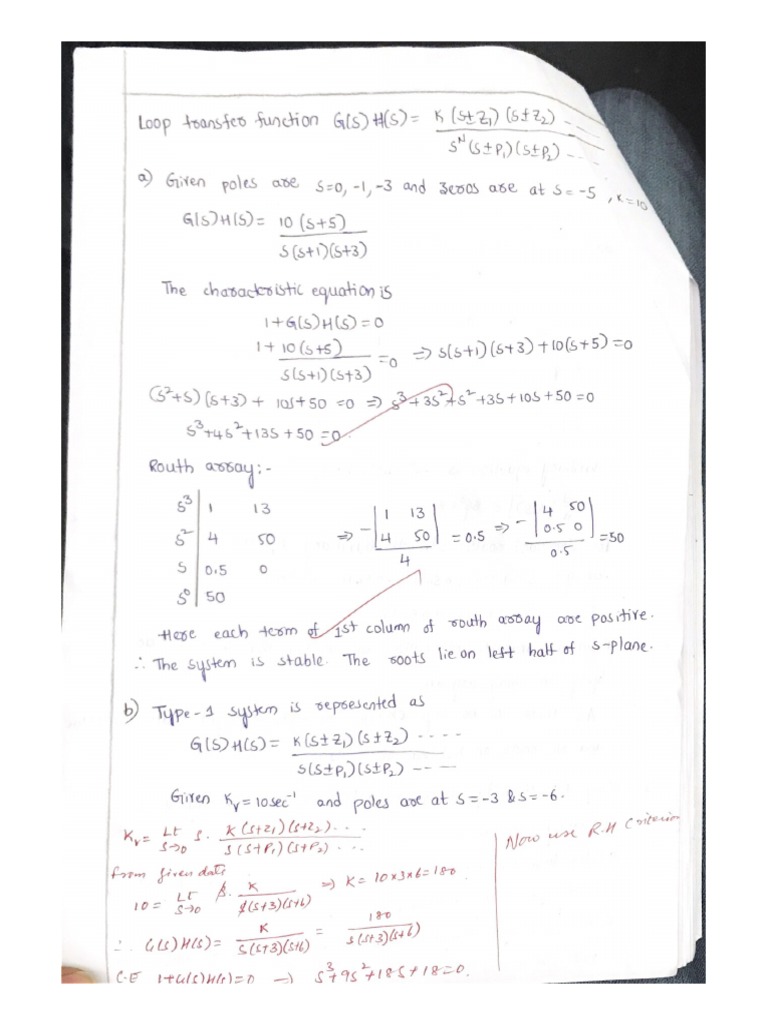 Loop transfer function G(s) H(s) = K (s±Z₁) (s±Z₂) ---- / Sᴺ (s±P₁) (s±P₂) ---
a) Given poles are s=0, -1, -3 and zeros are at s= -5, K=10
G(s)H(s) = 10 (s+5) / s(s+1)(s+3)
The characteristic equation is
1+G(s)H(s) = 0
1 + 10(s+5) / s(s+1)(s+3) = 0 ⇒ s(s+1)(s+3) + 10(s+5) = 0
(s²+s) (s+3) + 10s+50 = 0 ⇒ s³+3s²+s²+3s+10s+50 = 0
s³+4s²+13s+50 = 0
Routh array:-
s³ | 1 13
s² | 4 50 ⇒ -|1 13; 4 50| / 4 = 0.5 ⇒ -|4 50; 0.5 0| / 0.5 = 50
s | 0.5 0
s⁰ | 50
Here each term of 1st column of routh array are positive.
∴ The system is stable. The roots lie on left half of s-plane.
b) Type-1 system is represented as
G(s)H(s) = K(s±Z₁) (s±Z₂) ---- / s(s±P₁)(s±P₂) ----
Given Kᵥ = 10 sec⁻¹ and poles are at s=-3 & s=-6.
Kᵥ = Lt s→0 s. K(s+Z₁)(s+Z₂)... / s(s+P₁)(s+P₂)...
from given data
10 = Lt s→0 s. K / s(s+3)(s+6) ⇒ K = 10×3×6 = 180.
∴ G(s)H(s) = K / s(s+3)(s+6) = 180 / s(s+3)(s+6)
C.E 1+G(s)H(s)=0 → s³+9s²+18s+18=0.
Now use R.H Criterion